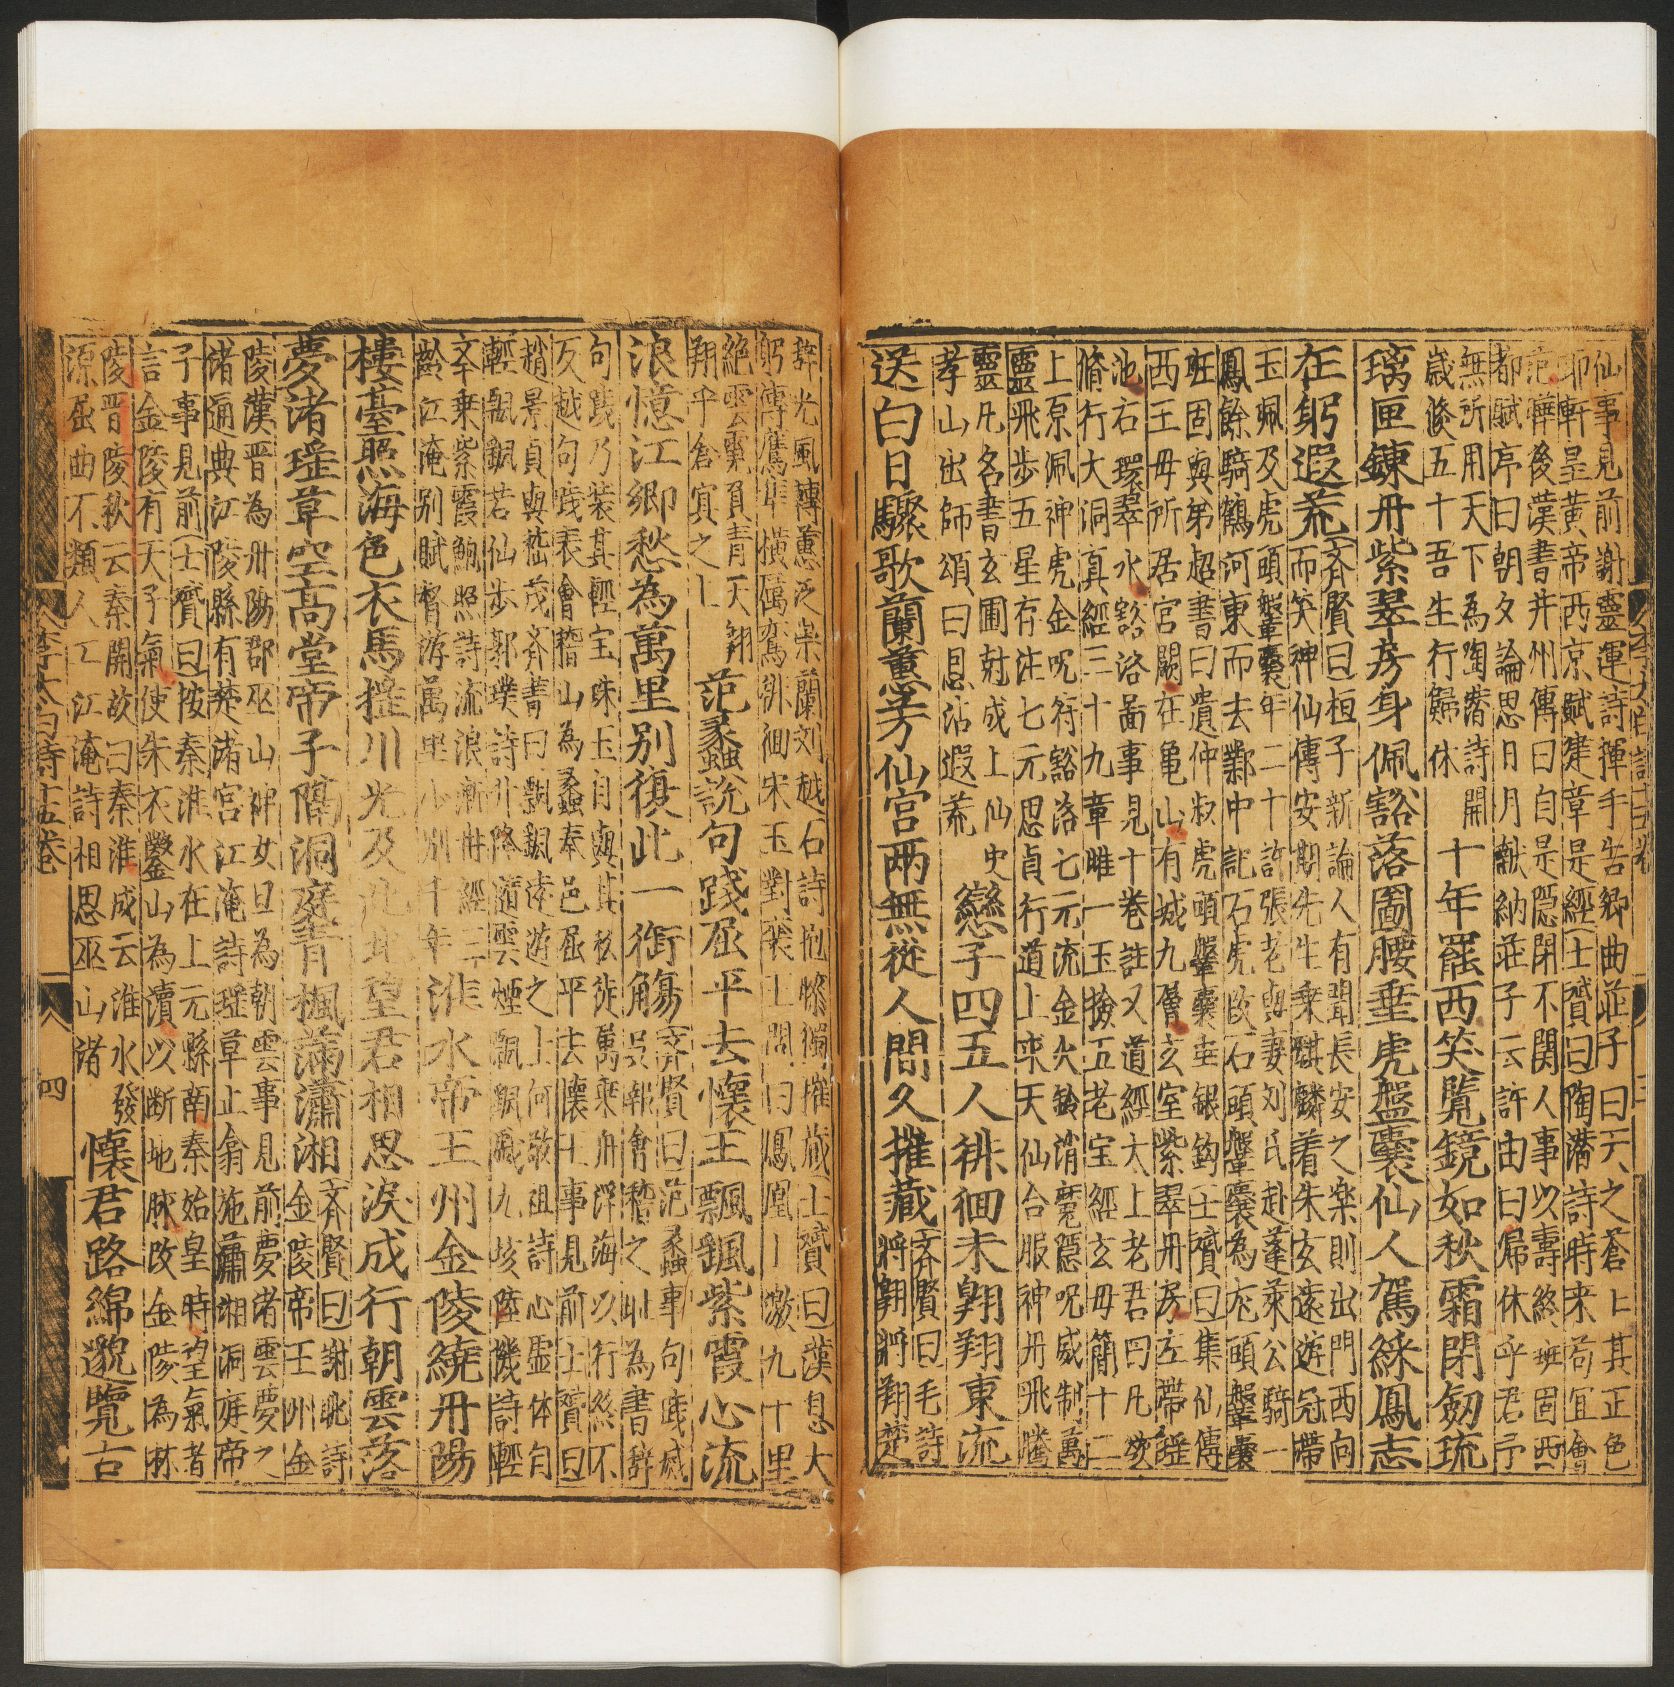 仙事見前謝靈運詩揮手告鄉曲莊子曰天之蒼上其正色
耶軒皇黃帝西京賦建章是經士贇曰陶潛詩時来苟宜會
范曄後漢書井州傳曰自是隠閉不関人事以壽終班固西
都賦序曰朝夕論思日月献納莊子云許由曰歸休乎君予
無所用天下為陶潛詩開
歲倐五十吾生行歸休
十年罷西笑覽鏡如秋霜閉劒琉
璃匣鍊丹紫翠房身佩豁落圖腰垂虎盤囊仙人駕綵鳳志
在躬遐荒
齐賢曰桓子新論人有聞長安之楽則出門西向
而笑神仙傳安期先生乗麒麟着朱玄遠遊冠帶
玉珮及虎頭鞶囊年二十許張老與妻刘氏赴蓬萊公騎一
鳳餘騎鶴河東而去鄴中記石虎改石頭鞶囊為庑頭鞶囊
班固與弟超書曰遺仲叔虎頭鞶囊金銀鉤士贇曰集仙傳
西王母所居宫闕在亀山有城九層玄室紫翠丹房左帶瑶
池右環翠水豁洛啚事見十巻註又道經大上老君曰凡欲
脩行大洞真經三十九章雌一玉撿五老宝經玄母簡十二
上原佩神虎金呪符豁洛七元流金火鈴消魔隠呪威制萬
靈飛步五星存注七元思貞行道上來天仙台服神丹飛騰
靈凡名書玄圃尅成上仙史
孝山出師頌曰息沾遐荒
戀子四五人徘徊未翺翔東流
送白日驟歌蘭蕙芳仙宫兩無從人間久摧藏
齐賢曰毛詩
將翺將翔楚
辞光風轉蕙泛崇蘭刘越石詩抱膝獨摧蔵士贇曰漢息夫
躬傳鷹隼横厲鸞徘徊宋玉對襄王問曰鳳凰上激九十里
絶雲霓負青天翺
翔乎倉冥之上
范蠡説句踐屈平去懷王飄飖紫霞心流
浪憶江鄉愁為萬里别復此一銜觴
齐賢曰范蠡事句踐威
呉報會稽之耻為書辞
句踐乃装其輕宝珠玉自與其私徒萬乗舟浮海以行终不
反越句踐表會稽山為蠡奉邑屈平去懷王事見前士贇曰
趙景貞與嵇茂齐書曰飄飖遠遊之上何敬祖詩心虚体自
輕飄飖若仙步郭璞詩升降随雲烟飄飖戲九垓陸機詩輕
举乗紫霞鮑照詩流浪漸冉經三
齡江淹别賦暫游萬里少别千年
淮水帝王州金陵繞丹陽
樓臺照海色衣馬揺川光及此北望君相思淚成行朝雲落
夢渚瑶草空高堂帝子隔洞庭青楓滿瀟湘
齐賢曰謝眺詩
金陵帝王州金
陵漢晋為丹陽郡巫山神女旦為朝雲事見前夢渚雲夢之
渚通典江陵縣有楚渚宫江淹詩瑶草正翕施瀟湘洞庭帝
子事見前士贇曰按秦淮水在上元縣南秦始皇時望氣者
言金陵有天子氣使朱衣鑿山為瀆以断地脉改金陵為秣
陵晋陵秋云秦開故曰秦淮成云淮水發
源屈曲不類人工江淹詩相思巫山渚
懷君路綿邈覽古
李太白詩十五卷
四